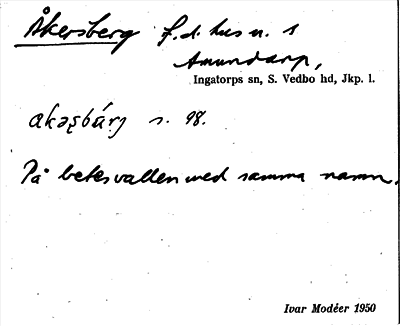 Åkersberg f.d. hus u. s
Amundarp,
Ingatorps sn, S. Vedbo hd, Jkp. l.
s. 98.
På betesvallen med samma namn.
Ivar Modéer 1950